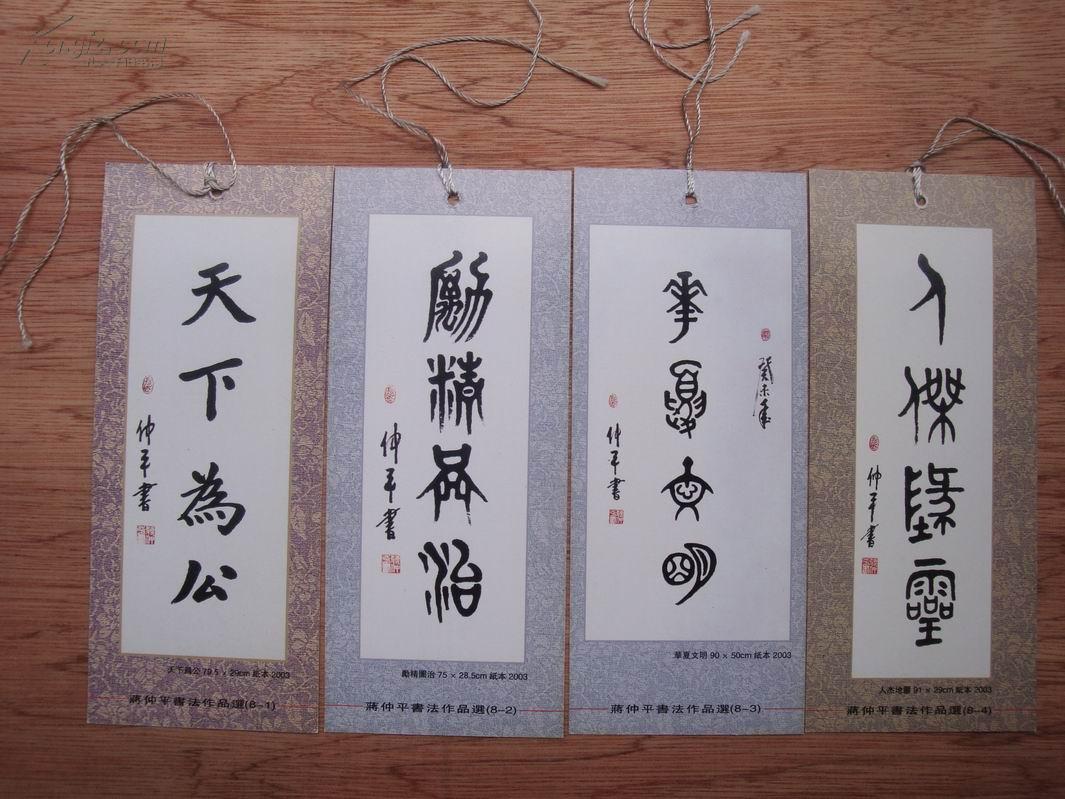 天下為公
仲平書
天下為公 79.5 × 29cm 紙本 2003
蔣仲平書法作品選(8-1)
勵精圖治
仲平書
勵精圖治 75 × 28.5cm 紙本 2003
蔣仲平書法作品選(8-2)
華夏文明
癸未年
仲平書
華夏文明 90 × 50cm 紙本 2003
蔣仲平書法作品選(8-3)
人傑地靈
仲平書
人杰地靈 91 × 29cm 紙本 2003
蔣仲平書法作品選(8-4)